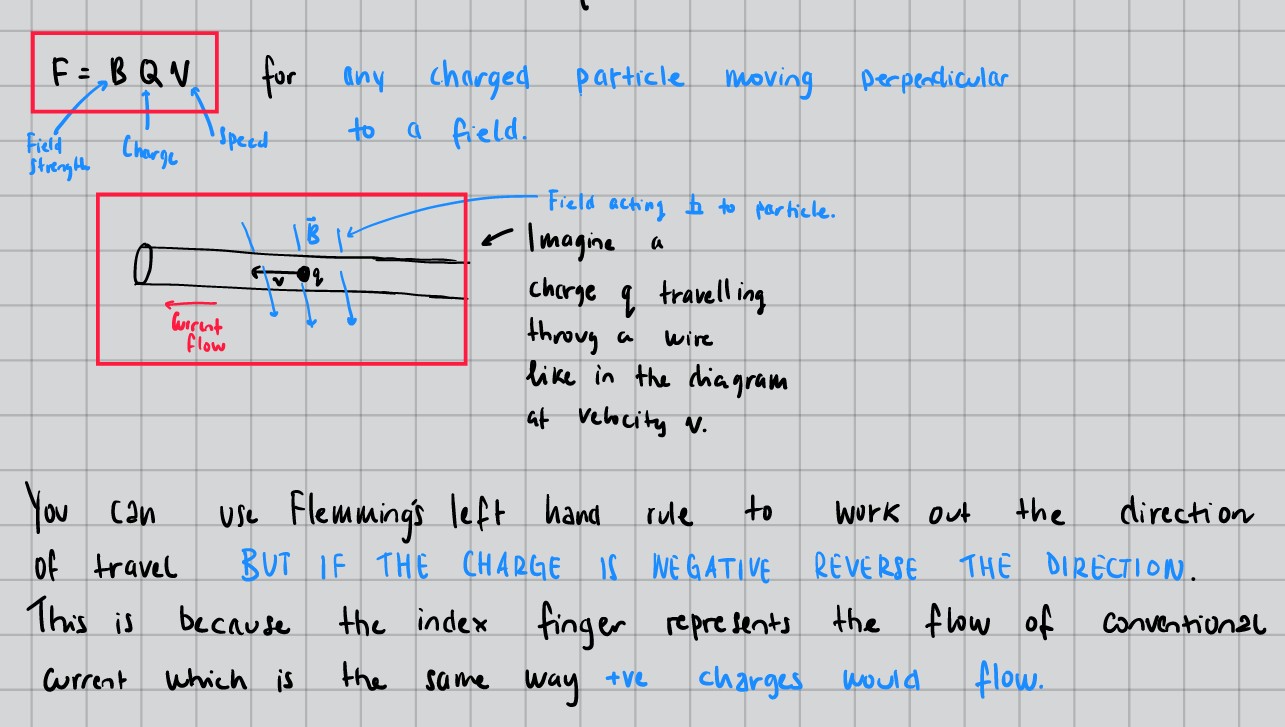 F = B Q V for any charged particle moving perpendicular
to a field.
Field
Strength
Charge
Speed
Field acting ⊥ to particle.
B
v
q
Current
flow
Imagine a
charge q travelling
throug a wire
like in the diagram
at velocity v.
You can use Flemming's left hand rule to work out the direction
of travel BUT IF THE CHARGE IS NEGATIVE REVERSE THE DIRECTION.
This is because the index finger represents the flow of conventional
current which is the same way +ve charges would flow.